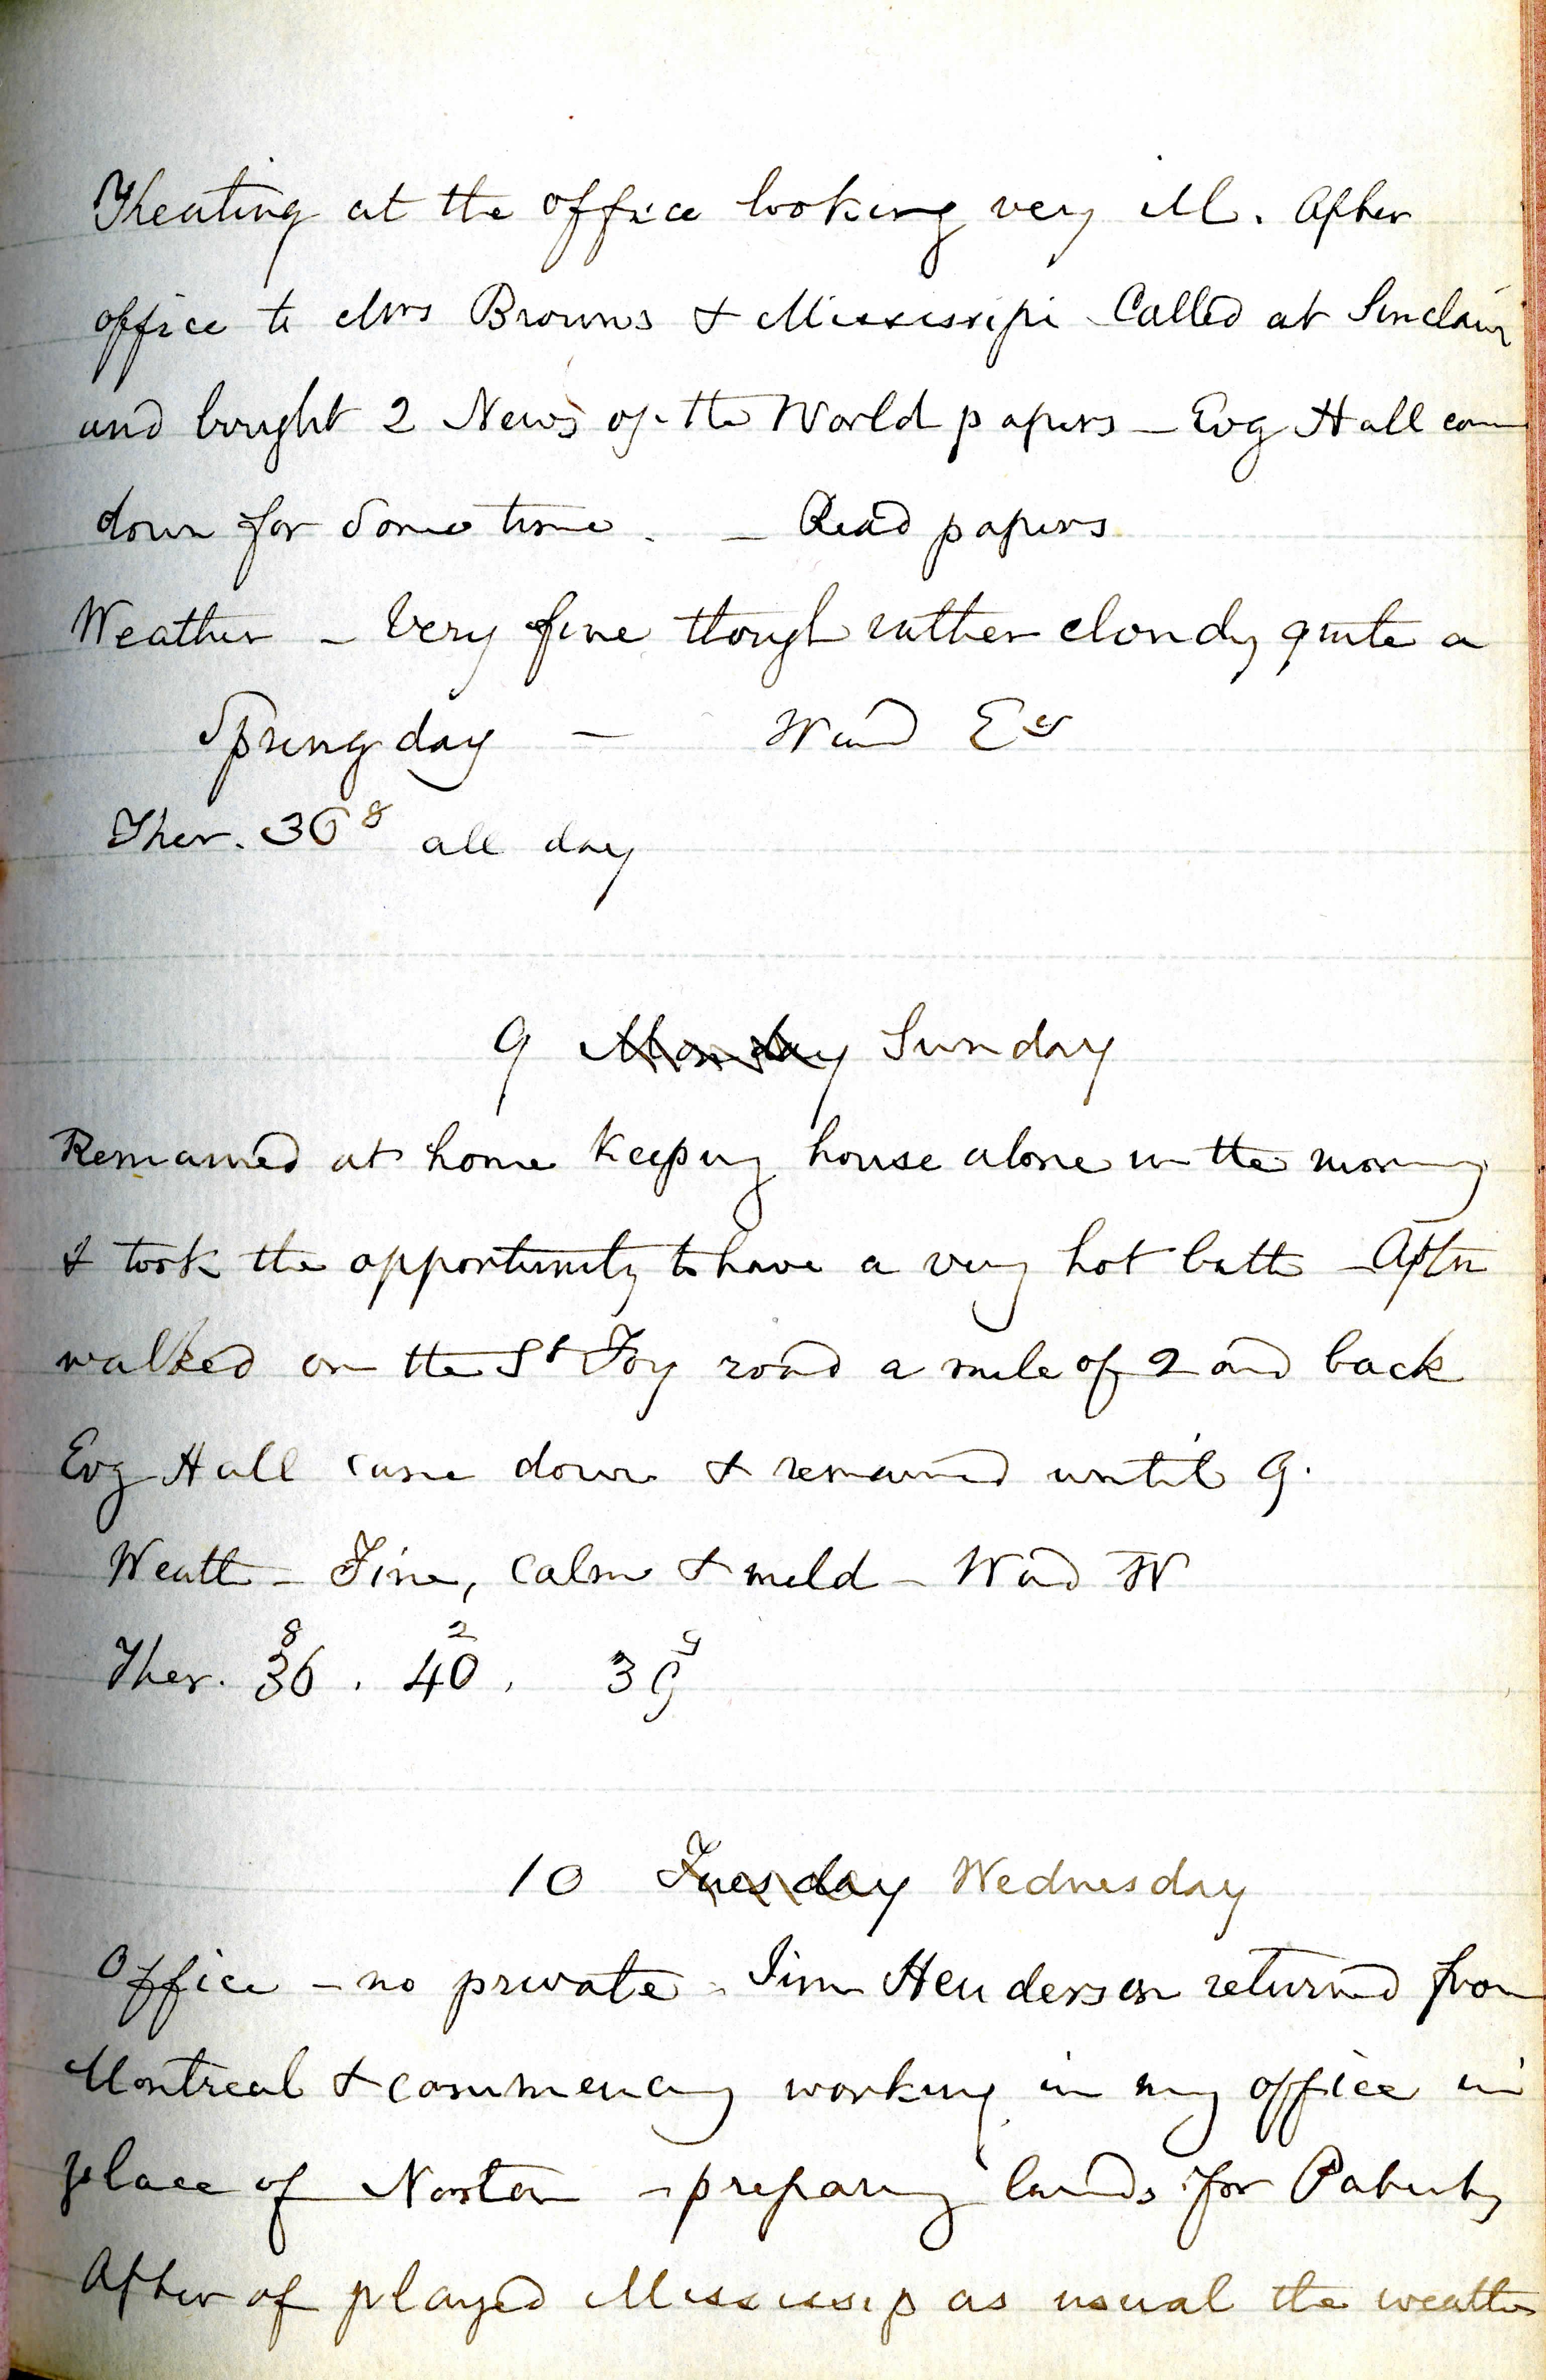 Keating at the office looking very ill. After
office to Mrs Browns & Mississipi Called at Sinclair
and bought 2 News of the World papers – Evg Hall came
down for some time. – Read papers
Weather – Very fine though rather cloudy quite a
Spring day – Wind E
Ther. 36 8 all day
9 Monday Sunday
Remained at home keeping house alone in the morning
& took the opportunity to have a very hot bath – Aftn
walked on the St Foy road a mile of 2 and back
Evg Hall came down & remained until 9.
Weath – Fine, calm & mild – Wind W
8 2 9
Ther. 36 . 40 . 39
10 Tuesday Wednesday
Office – no private – Jim Henderson returned from
Montreal & commencing working in my office in
place of – preparing lands for
After of played Mississip as usual the weather